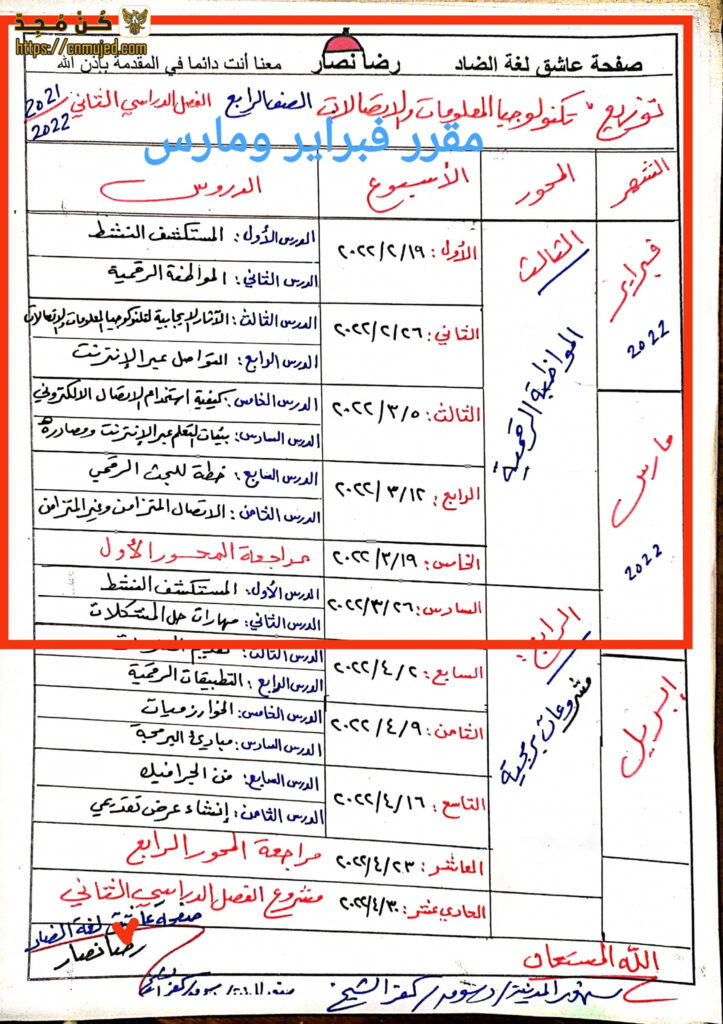 كُن مُجدّ
https://cnmujed.com
صفحة عاشق لغة الضاد رضا نصار معنا أنت دائما في المقدمة بإذن الله
توزيع تكنولوجيا المعلومات والاتصالات الصف الرابع الفصل الدراسي الثاني 2021/2022
مقرر فبراير ومارس
الشهر المحور الأسبوع الدروس
فبراير 2022
الثالث المواطنة الرقمية
الأول: ٢٠٢٢/٢/١٩
الدرس الأول: المستكشف النشط
الدرس الثاني: المواطنة الرقمية
الثاني: ٢٠٢٢/٢/٢٦
الدرس الثالث: الآثار الإيجابية لتكنولوجيا المعلومات والاتصالات
الدرس الرابع: التواصل عبر الإنترنت
مارس 2022
الثالث: ٢٠٢٢/٣/٥
الدرس الخامس: كيفية استخدام الاتصال الالكتروني
الدرس السادس: بيئات التعلم عبر الإنترنت ومصادره
الرابع: ٢٠٢٢/٣/١٢
الدرس السابع: خطة للبحث الرقمي
الدرس الثامن: الاتصال المتزامن وغير المتزامن
الخامس: ٢٠٢٢/٣/١٩ مراجعة المحور الأول
الرابع مشروعات برمجية
السادس: ٢٠٢٢/٣/٢٦
الدرس الأول: المستكشف النشط
الدرس الثاني: مهارات حل المشكلات
إبريل
السابع: ٢٠٢٢/٤/٢
الدرس الثالث: تقديم
الدرس الرابع: التطبيقات الرقمية
الثامن: ٢٠٢٢/٤/٩
الدرس الخامس: الخوارزميات
الدرس السادس: مبادئ البرمجة
التاسع: ٢٠٢٢/٤/١٦
الدرس السابع: فن الجرافيك
الدرس الثامن: إنشاء عرض تقديمي
العاشر: ٢٠٢٢/٤/٢٣ مراجعة المحور الرابع
الحادي عشر: ٢٠٢٢/٤/٣٠ مشروع الفصل الدراسي الثاني
الله المستعان
صفحة عاشق لغة الضاد
رضا نصار
سنهور المدينة / دسوق / كفر الشيخ